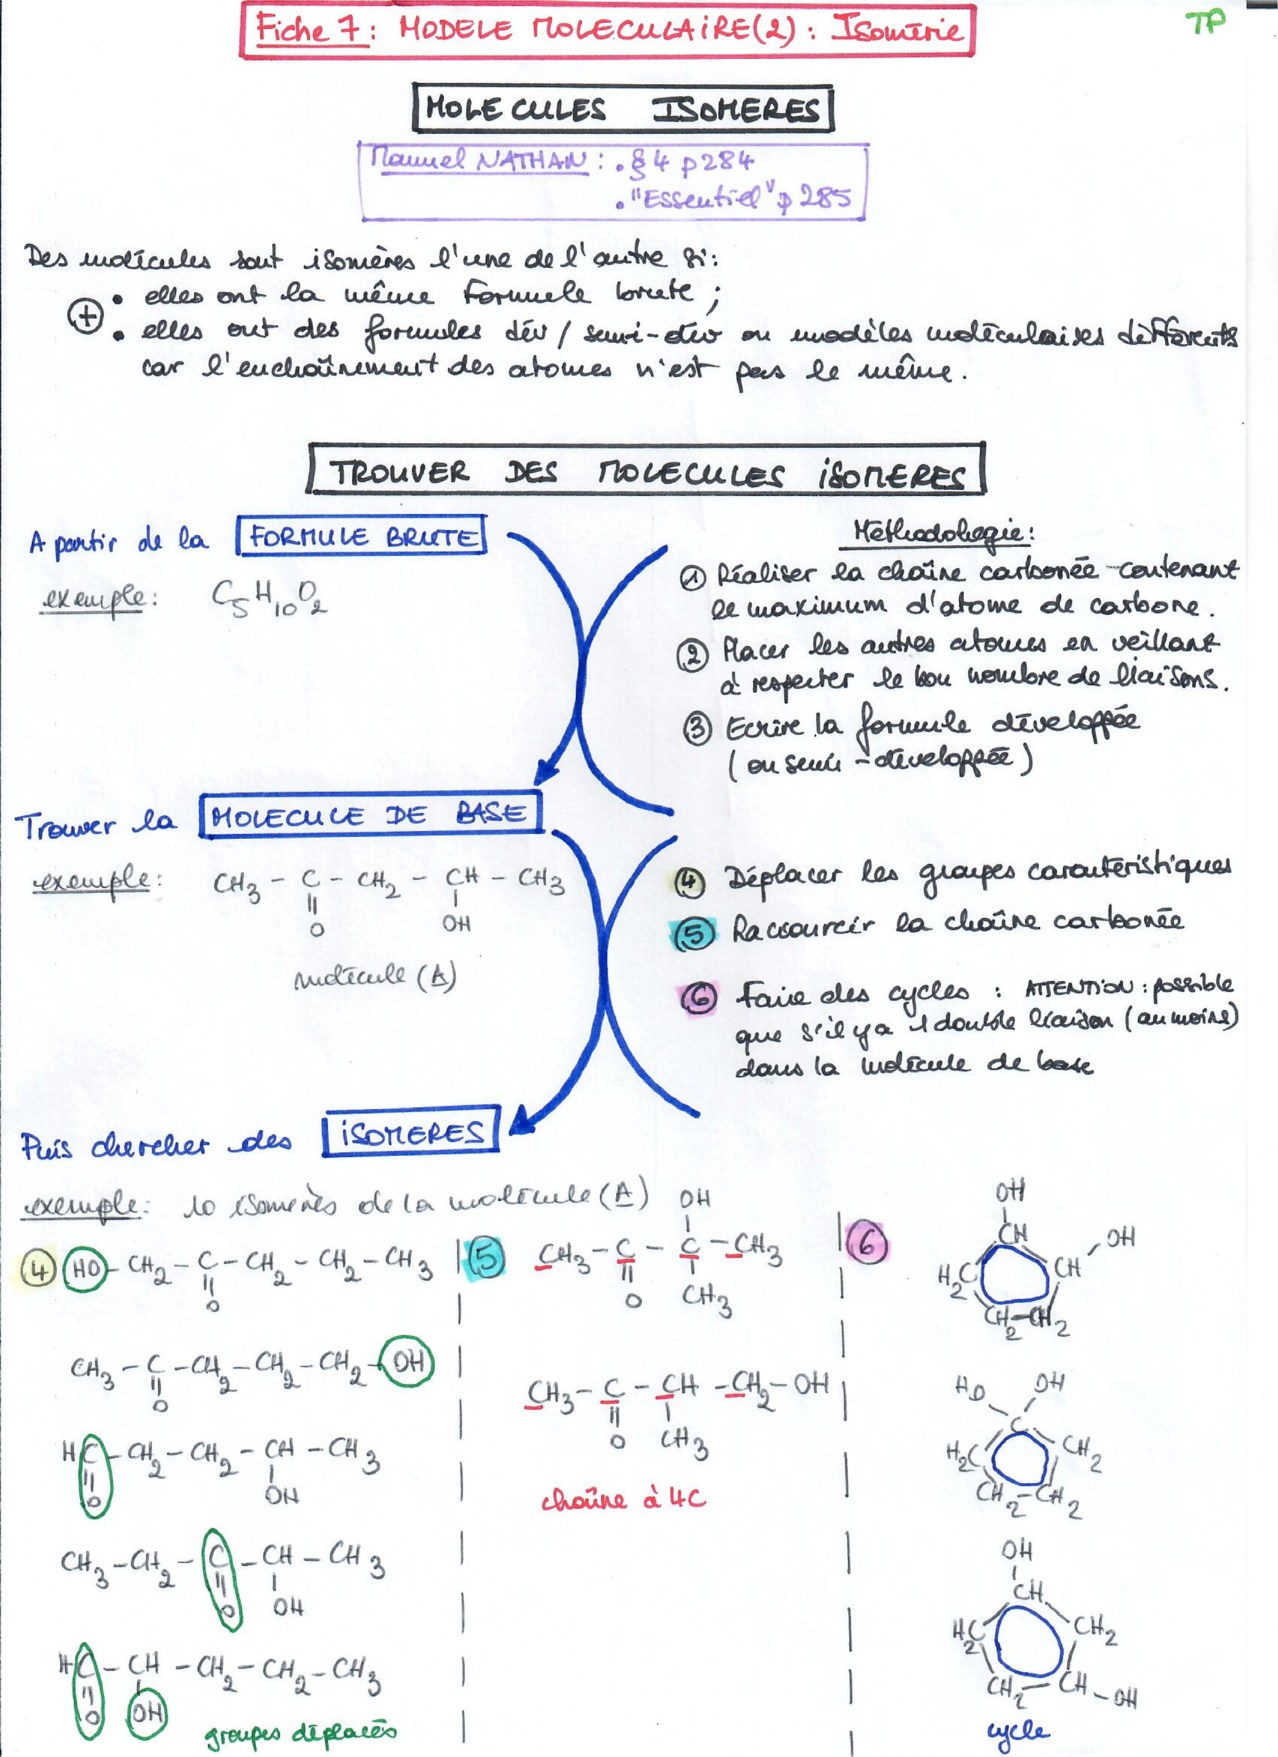 Fiche 7 : MODELE MOLECULAIRE(2) : Isomérie
TP
MOLECULES ISOMERES
Manuel NATHAN : . § 4 p 284
. "Essentiel" p 285
Des molécules sont isomères l'une de l'autre si :
+ • elles ont la même formule brute ;
• elles ont des formules dév / semi-dév ou modèles moléculaires différents
car l'enchaînement des atomes n'est pas le même.
TROUVER DES MOLECULES ISOMERES
A partir de la FORMULE BRUTE
exemple : C5H10O2
Méthodologie :
① Réaliser la chaîne carbonée contenant
le maximum d'atome de carbone.
② Placer les autres atomes en veillant
à respecter le bon nombre de liaisons.
③ Ecrire la formule développée
(ou semi-développée)
Trouver la MOLECULE DE BASE
exemple : CH3 - C - CH2 - CH - CH3
O OH
molécule (A)
④ Déplacer les groupes caractéristiques
⑤ Raccourcir la chaîne carbonée
⑥ Faire des cycles : ATTENTION : possible
que s'il y a 1 double liaison (au moins)
dans la molécule de base
Puis chercher des ISOMERES
exemple : 10 isomères de la molécule (A)
④ HO - CH2 - C - CH2 - CH2 - CH3
O
CH3 - C - CH2 - CH2 - CH2 - OH
O
HC - CH2 - CH2 - CH - CH3
O OH
CH3 - CH2 - C - CH - CH3
O OH
HC - CH - CH2 - CH2 - CH3
O OH
groupes déplacés
⑤ OH
CH3 - C - C - CH3
O CH3
CH3 - C - CH - CH2 - OH
O CH3
chaîne à 4C
⑥ OH
CH OH
H2C CH
CH2 - CH2
HO OH
C
H2C CH2
CH2 - CH2
OH
CH
H2C CH2
CH2 - CH - OH
cycle